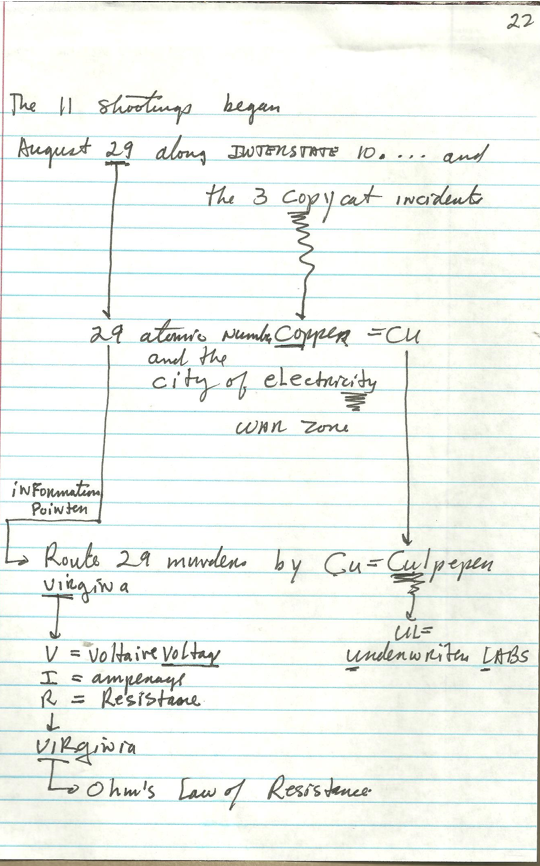 22
The 11 shootings began
August 29 along INTERSTATE 10.... and
the 3 copycat incidents
29 atomic number Copper = Cu
and the
city of electricity
WAR ZONE
information
Pointer
Route 29 murders by Cu = Culpeper
Virginia
UL=
Underwriter LABS
V = Voltaire Voltag
I = amperage
R = Resistane
VIRginia
Ohm's Law of Resistance